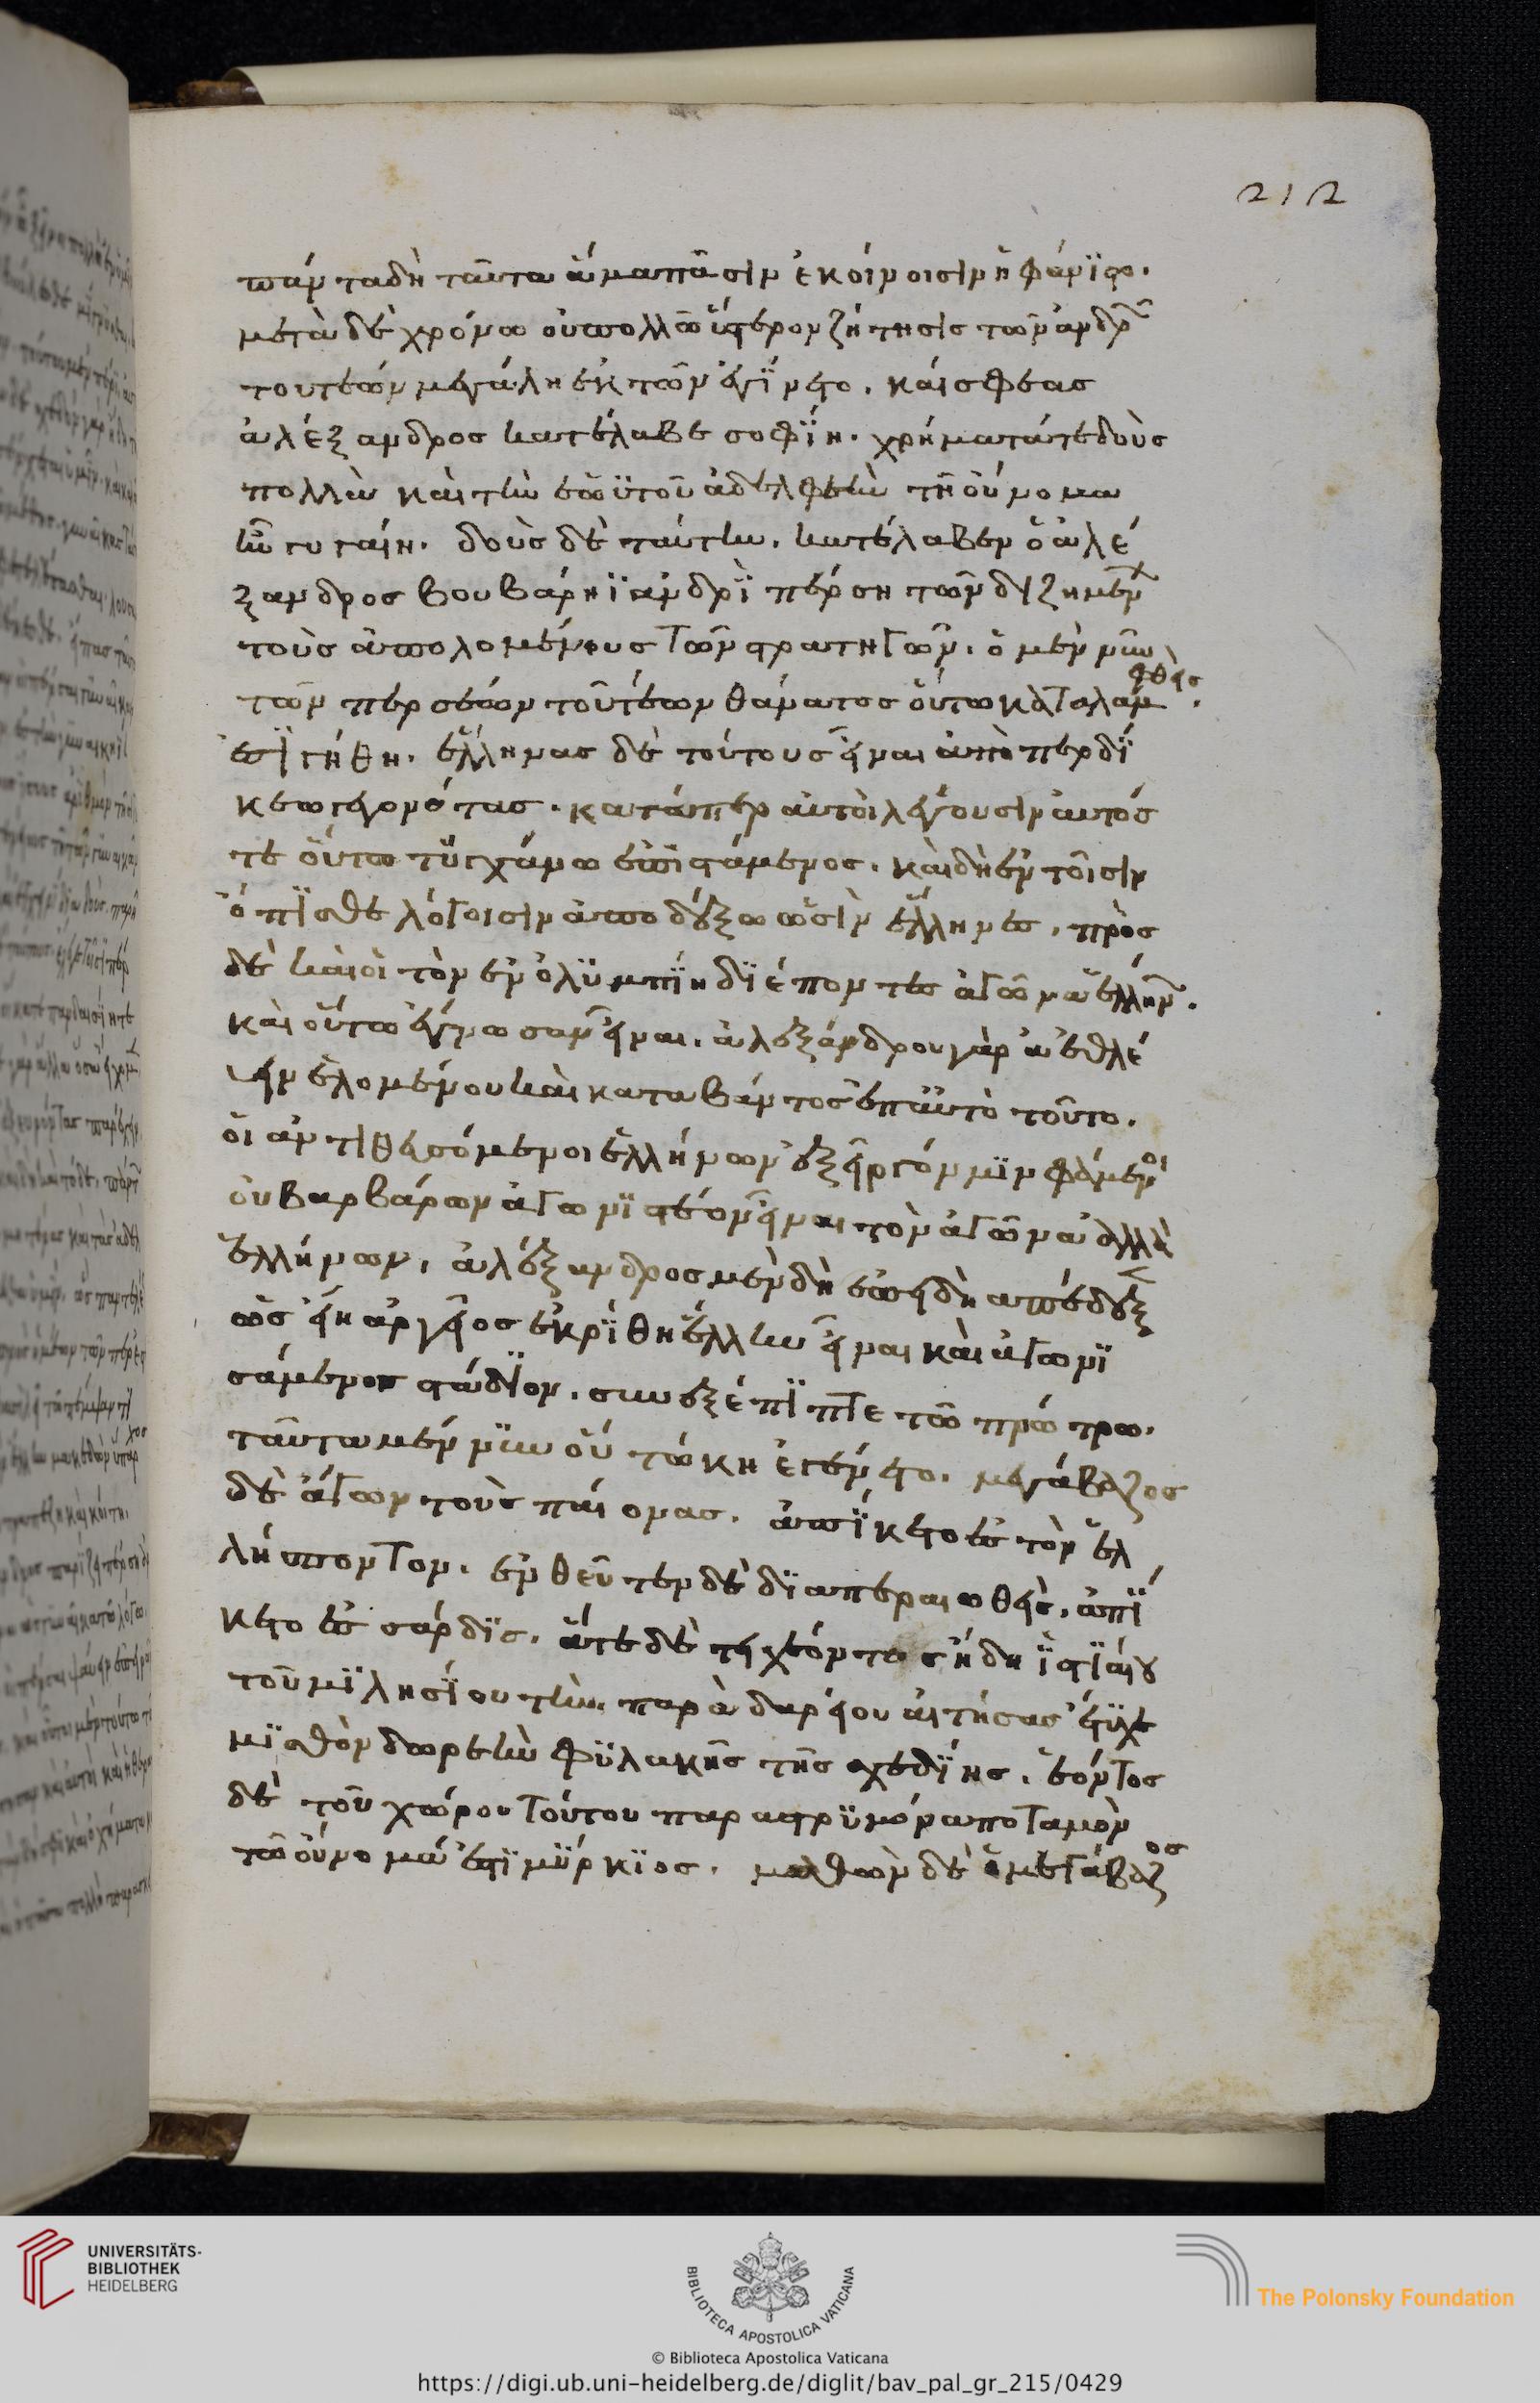 212
πάντα δὴ ταῦτα ἅμα πᾶσιν ἐκείνοισιν ἠφάνιστο.
μετὰ δὲ χρόνω οὐ πολλῶ ὕστερον ζήτησις τῶν ἀνδρῶν
τουτέων μεγάλη ἐκ τῶν ἐγίνετο. καί σφεας
ἀλέξανδρος κατέλαβε σοφίη. χρήματά τε δοὺς
πολλὰ καὶ τὴν ἑωϋτοῦ ἀδελφεὴν τῆ οὔνομα
ἦν γυγαίη. δοὺς δὲ ταύτην. κατέλαβεν ὁ ἀλέ
ξανδρος βουβάρηϊ ἀνδρὶ πέρση τῶν διζημένων
τοὺς ἀπολομένους τῶν στρατηγῶν. ὁ μέν νυν
τῶν περσέων τουτέων θάνατος οὕτω καταλαμφθεὶς
ἐσιγήθη. ἕλληνας δὲ τούτους εἶναι ἀπὸ περδί
κεω γεγονότας. κατάπερ αὐτοὶ λέγουσιν αὐτός
τε οὕτω τυγχάνω ἐπιστάμενος. καὶ δὴ ἐν τοῖσιν
ὄπισθε λόγοισιν ἀποδείξω ὥς εἰσιν ἕλληνες, πρὸς
δὲ καὶ οἱ τὸν ἐν ὀλυμπίη διέποντες ἀγῶνα ἑλλήνων.
καὶ οὕτω ἔγνωσαν εἶναι. ἀλεξάνδρου γὰρ ἀεθλέ
ειν ἑλομένου καὶ καταβάντος ἐπ' αὐτὸ τοῦτο.
οἱ ἀντιθευσόμενοι ἑλλήνων ἐξεῖργόν μιν φάμενοι
οὐ βαρβάρων ἀγωνιστέων εἶναι τὸν ἀγῶνα ἀλλὰ
ἑλλήνων, ἀλέξανδρος μὲν δὴ ἐπειδὴ ἀπέδειξε
ὡς εἴη ἀργεῖος ἐκρίθη ἕλλην εἶναι καὶ ἀγωνι
σάμενος στάδιον. συνεξέπιπτε τῶ πρώτω.
ταῦτα μέν νυν οὕτω κη ἐγένετο. μεγάβαζος
δὲ ἄγων τοὺς παίονας. ἀπίκετο ἐς τὸν ἑλ
λήσποντον. ἐνθεῦτεν δὲ διαπεραιωθεὶς. ἀπί
κετο ἐς σάρδις. ἅτε δὲ τειχέοντος ἤδη ἱστιαίου
τοῦ μιλησίου τὴν παρὰ δαρείου αἰτήσας ἔτυχε
μισθὸν δωρεὴν φυλακῆς τῆς σχεδίης. ἐόντος
δὲ τοῦ χώρου τούτου παρα στρυμόνα ποταμὸν
τῶ οὔνομά ἐστι μύρκιος. μαθὼν δὲ ὁ μεγάβαζος
UNIVERSITÄTS-
BIBLIOTHEK
HEIDELBERG
BIBLIOTECA APOSTOLICA VATICANA
The Polonsky Foundation
© Biblioteca Apostolica Vaticana
https://digi.ub.uni-heidelberg.de/diglit/bav_pal_gr_215/0429